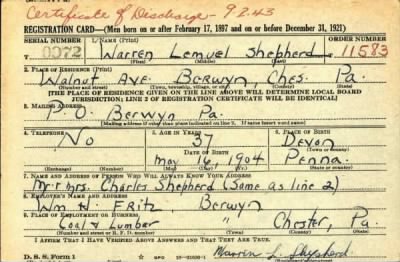 Certificate of Discharge - 9-2-43
REGISTRATION CARD—(Men born on or after February 17, 1897 and on or before December 31, 1921)
SERIAL NUMBER 1. NAME (Print) ORDER NUMBER
0072 Warren Lemuel Shepherd 11583
(First) (Middle) (Last)
2. PLACE OF RESIDENCE (Print)
Walnut Ave. Berwyn, Ches. Pa.
(Number and street) (Town, township, village, or city) (County) (State)
[THE PLACE OF RESIDENCE GIVEN ON THE LINE ABOVE WILL DETERMINE LOCAL BOARD
JURISDICTION; LINE 2 OF REGISTRATION CERTIFICATE WILL BE IDENTICAL]
3. MAILING ADDRESS
P.O. Berwyn Pa.
[Mailing address if other than place indicated on line 2. If same insert word same]
4. TELEPHONE 5. AGE IN YEARS 6. PLACE OF BIRTH
No 37 Devon
DATE OF BIRTH (Town or county)
May 16, 1904 Penna.
(Exchange) (Number) (Mo.) (Day) (Yr.) (State or country)
7. NAME AND ADDRESS OF PERSON WHO WILL ALWAYS KNOW YOUR ADDRESS
Mr & Mrs. Charles Shepherd (Same as line 2)
8. EMPLOYER'S NAME AND ADDRESS
Wm H. Fritz Berwyn
9. PLACE OF EMPLOYMENT OR BUSINESS
Coal & Lumber " Chester, Pa
(Number and street or R. F. D. number) (Town) (County) (State)
I AFFIRM THAT I HAVE VERIFIED ABOVE ANSWERS AND THAT THEY ARE TRUE.
D. S. S. Form 1 Warren L. Shepherd